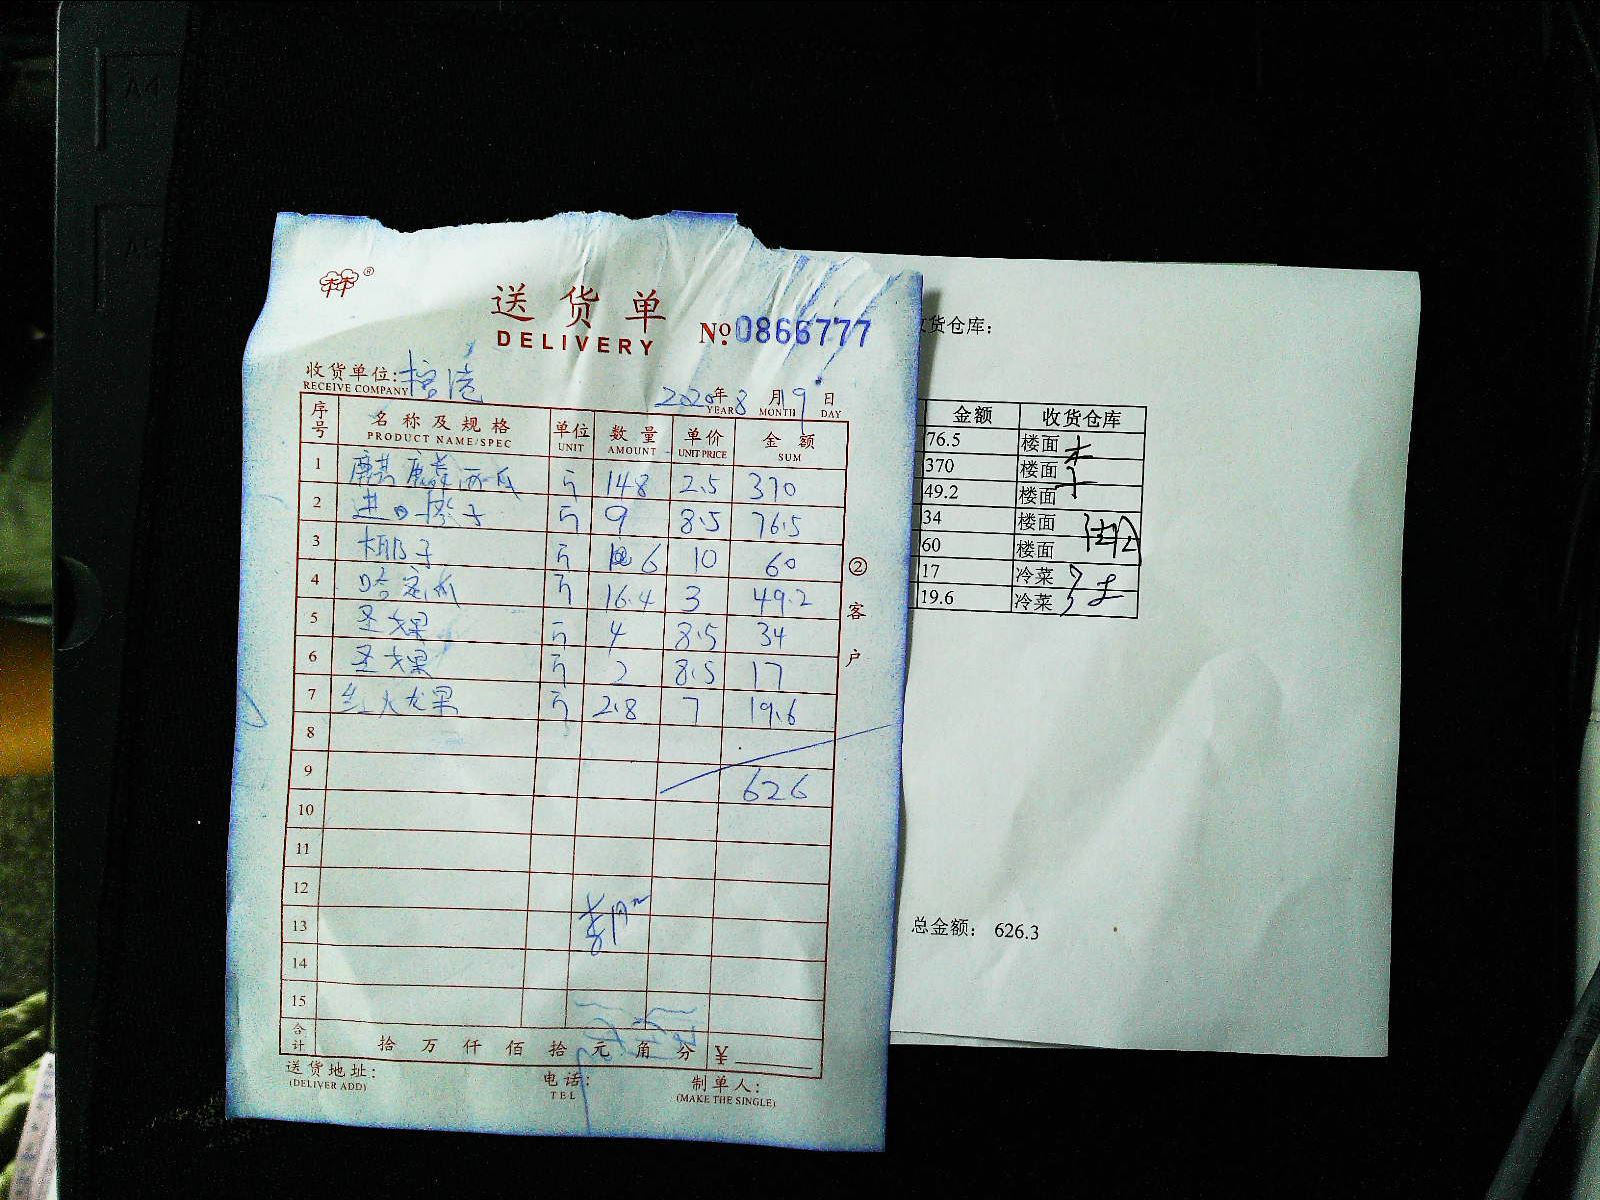 A4
A5
送货单
DELIVERY
No. 0866777
收货单位:
RECEIVE COMPANY
2020年8月9日
YEAR MONTH DAY
序号 名称及规格 单位 数量 单价 金额
PRODUCT NAME/SPEC UNIT AMOUNT UNIT PRICE SUM
1 麒麟西瓜 斤 148 2.5 370
2 进口橙子 斤 9 8.5 76.5
3 椰子 斤 6 10 60
4 哈密瓜 斤 16.4 3 49.2
5 圣女果 斤 4 8.5 34
6 圣女果 斤 2 8.5 17
7 红火龙果 斤 2.8 7 19.6
8
9 626
10
11
12
13
14
15
合计 拾万仟佰拾元角分 ¥
送货地址: 电话: 制单人:
(DELIVER ADD) TEL (MAKE THE SINGLE)
②客户
货仓库:
金额 收货仓库
76.5 楼面
370 楼面
49.2 楼面
34 楼面
60 楼面
17 冷菜
19.6 冷菜
总金额: 626.3